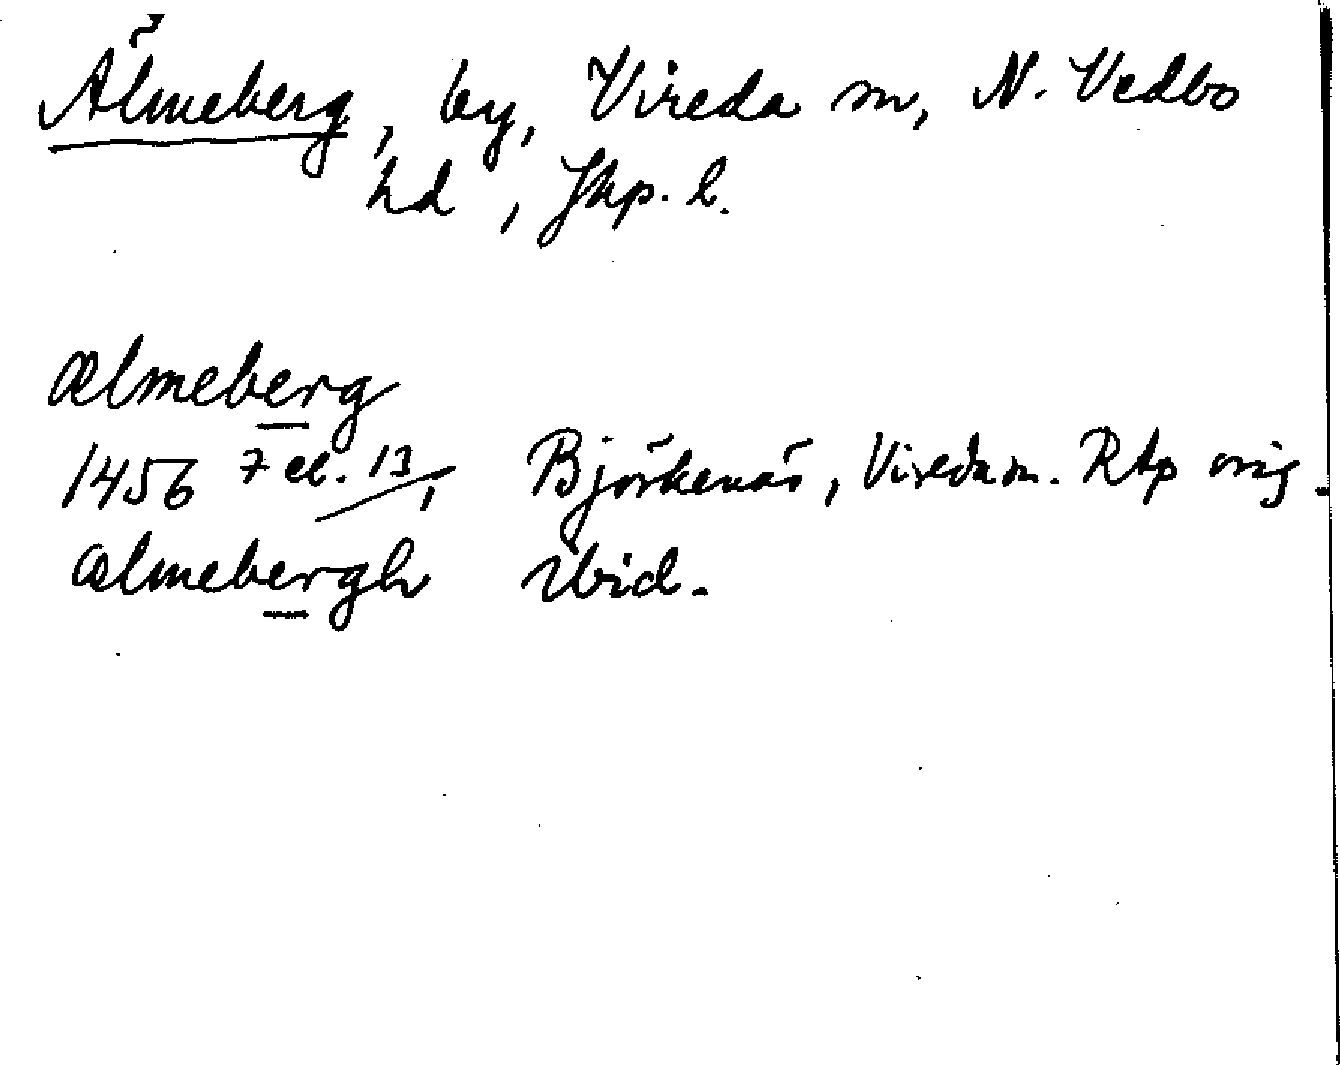 Älmeberg, by, Vireda sn, N. Vedbo
hd, Jkp. l.
ælmeberg
1456 7 el. 13, Björkenäs, Vireda sn. RAp orig.
ælmebergh Ibid.